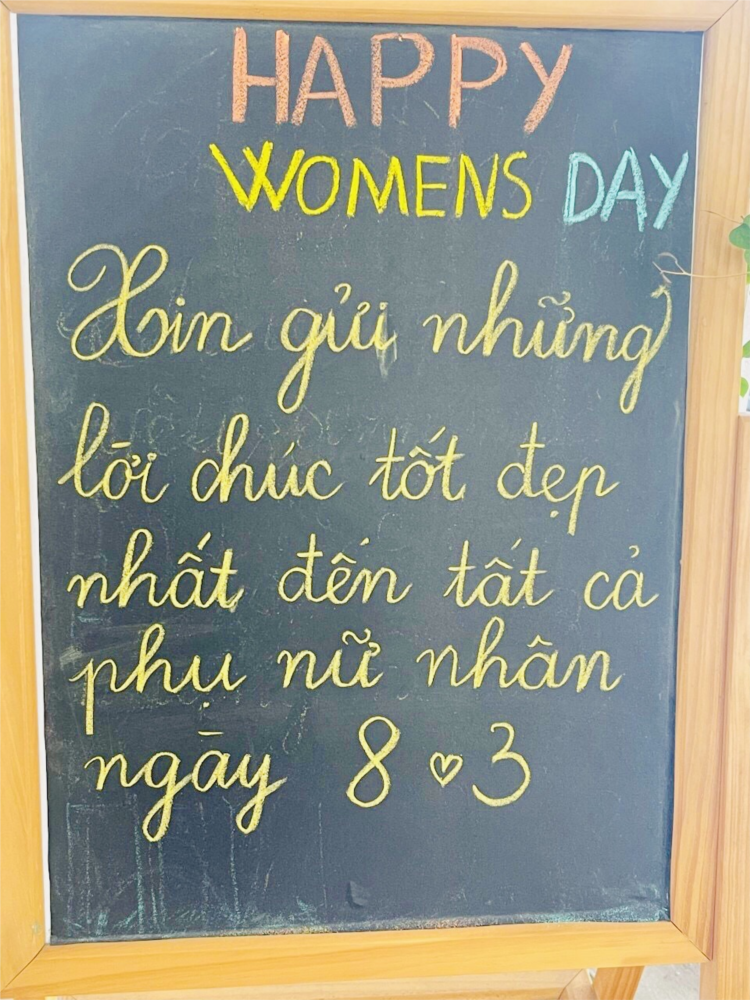 HAPPY
WOMENS DAY
Xin gửi những
lời chúc tốt đẹp
nhất đến tất cả
phụ nữ nhân
ngày 8 ♡ 3